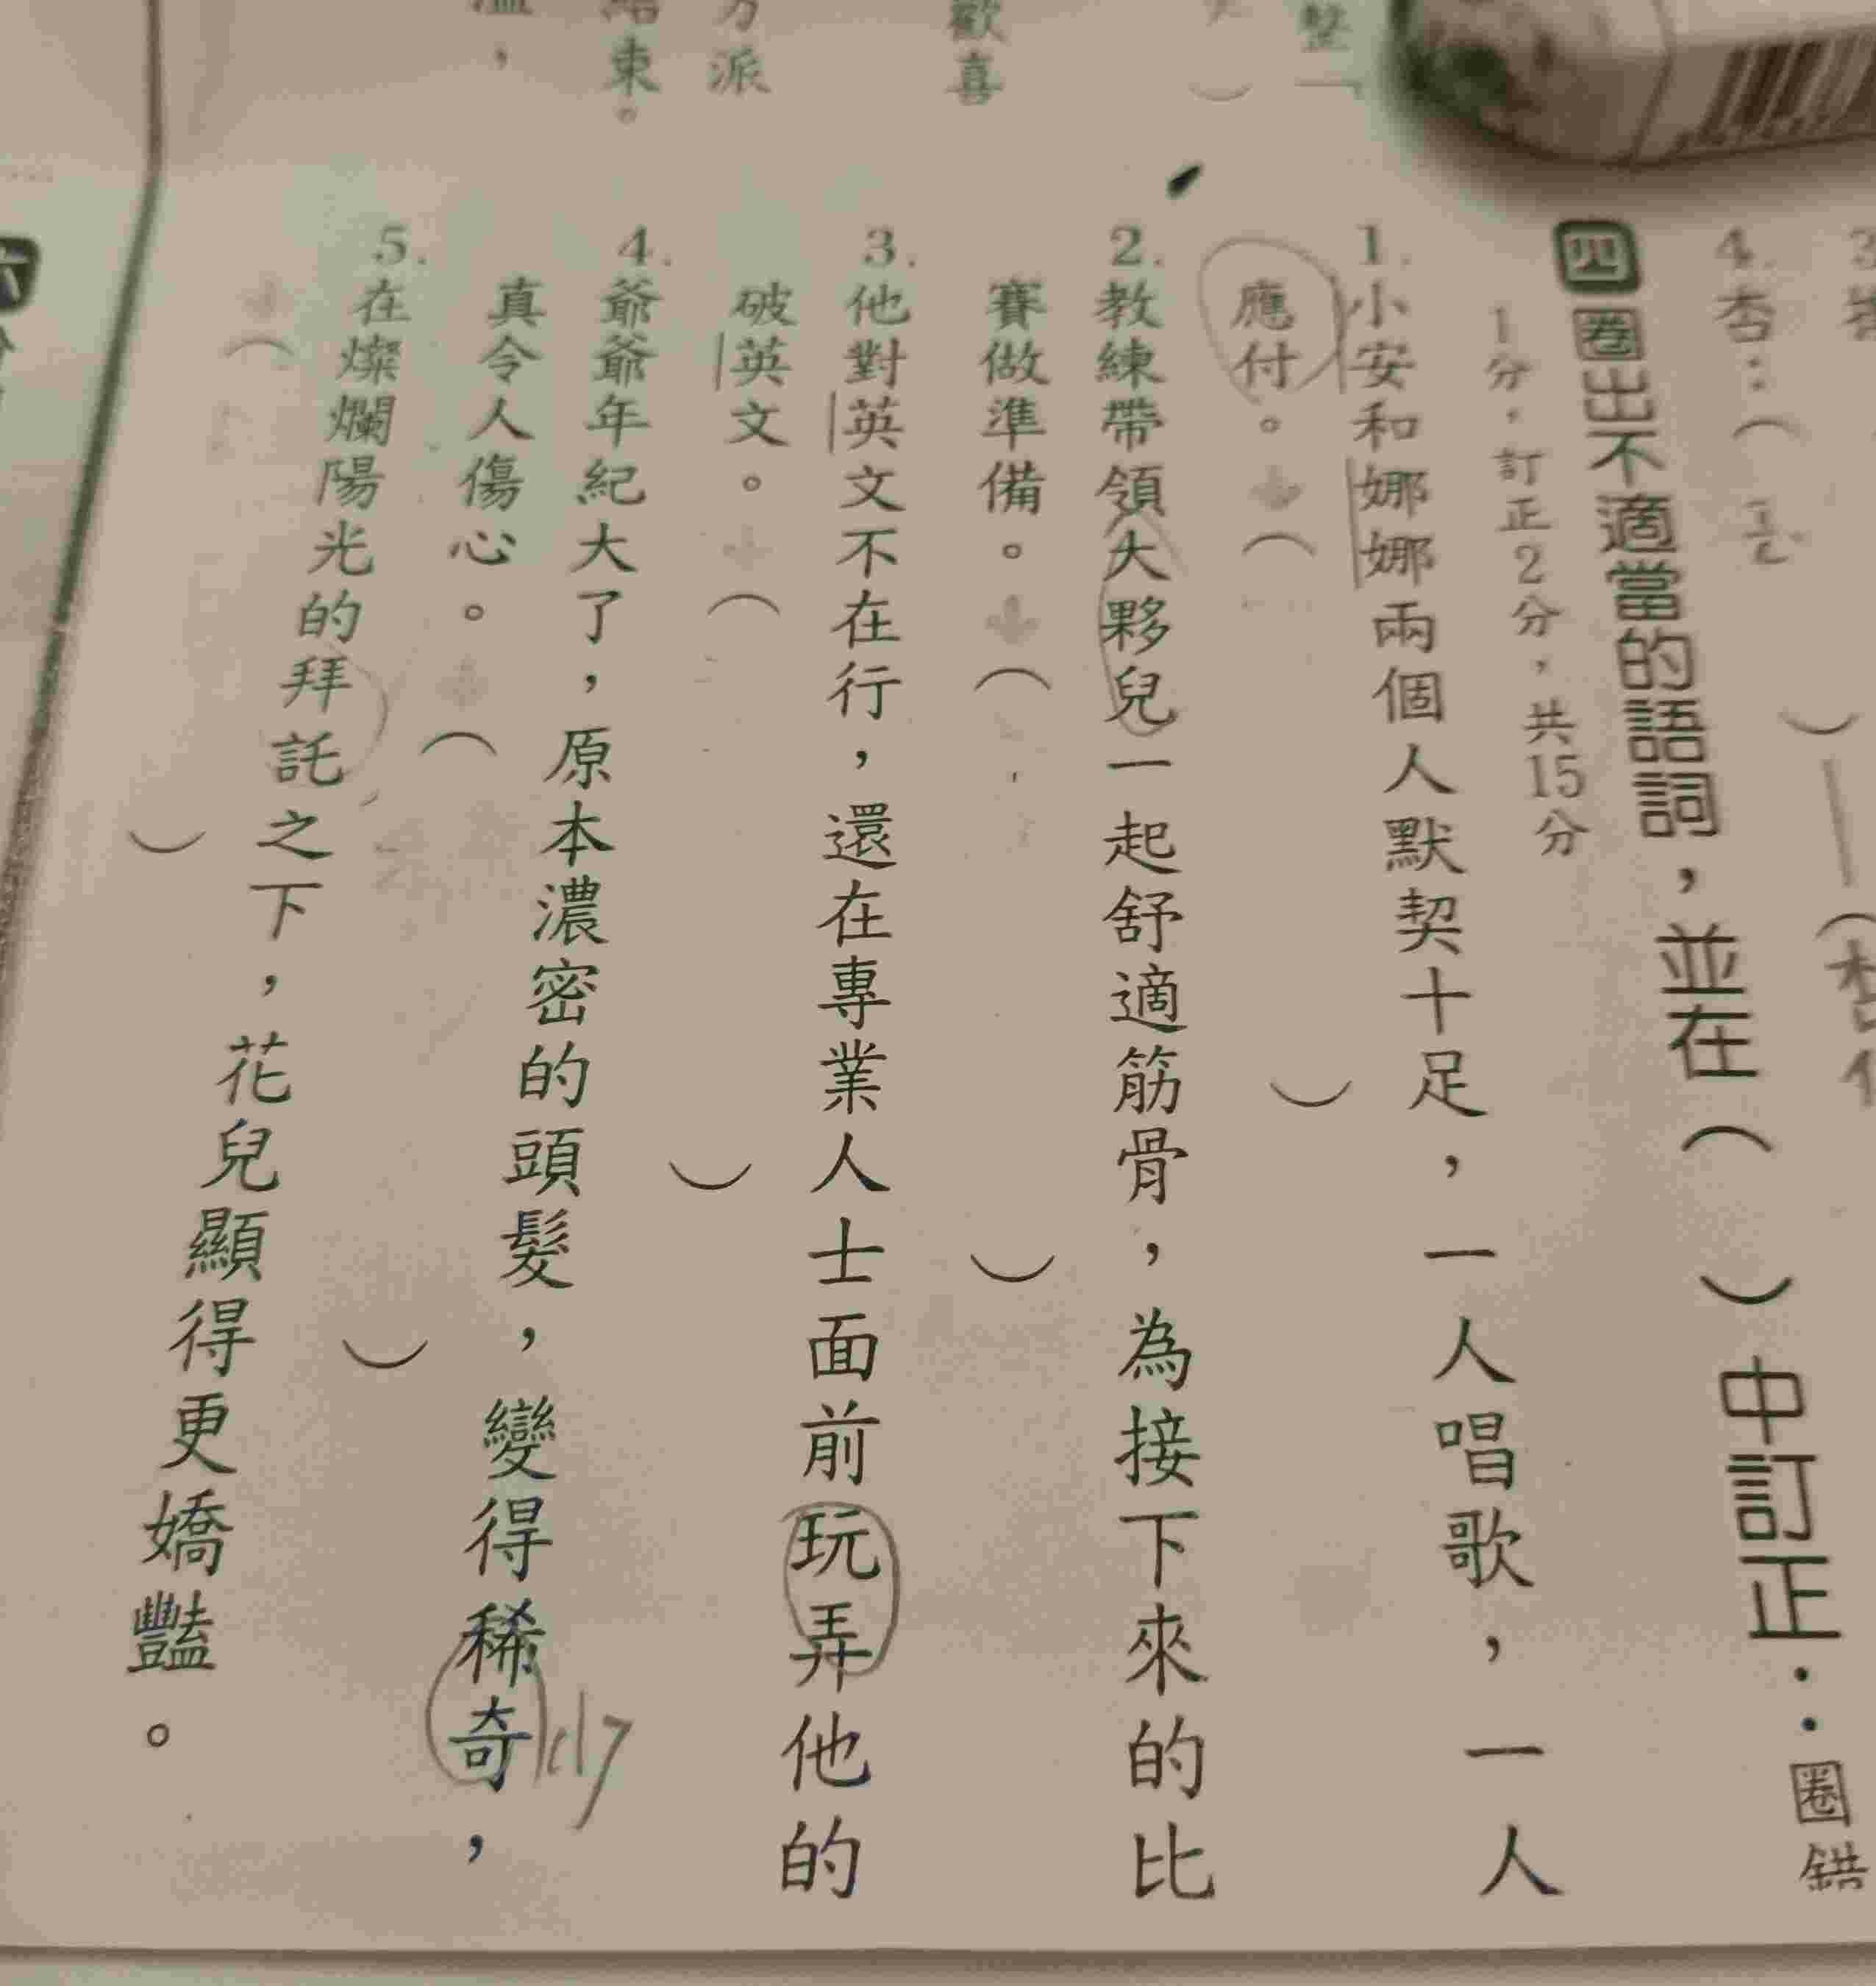 四 圈出不適當的語詞，並在（ ）中訂正：圈錯
1分，訂正2分，共15分
1. 小安和娜娜兩個人默契十足，一人唱歌，一人
應付。（ ）
2. 教練帶領大夥兒一起舒適筋骨，為接下來的比
賽做準備。（ ）
3. 他對英文不在行，還在專業人士面前玩弄他的
破英文。（ ）
4. 爺爺年紀大了，原本濃密的頭髮，變得稀奇，
真令人傷心。（ ）
5. 在燦爛陽光的拜託之下，花兒顯得更嬌豔。
（ ）
4. 杏：（
整
歡喜
方派
結束。
六